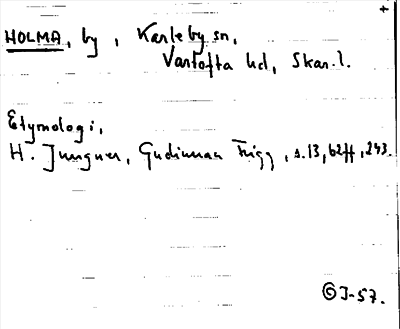 +
HOLMA, by, Karleby sn,
Vartofta hd, Skar.l.
Etymologi,
H. Jungner, Gudinnan Frigg, s.13, 62ff, 243.
©J-57.